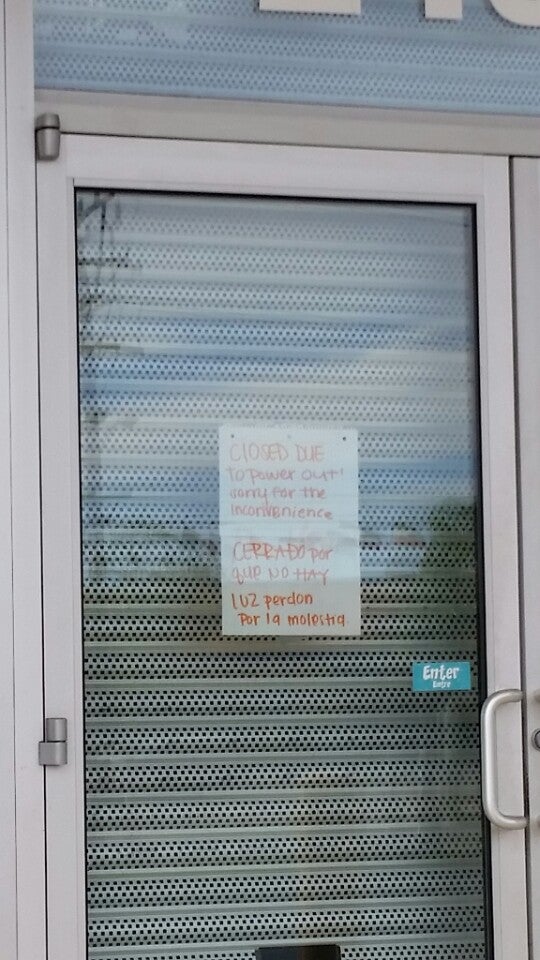 CLOSED DUE
To power out'
sorry for the
inconvenience
CERRADO por
que NO HAY
luz perdon
Por la molestia.
Enter
Entre